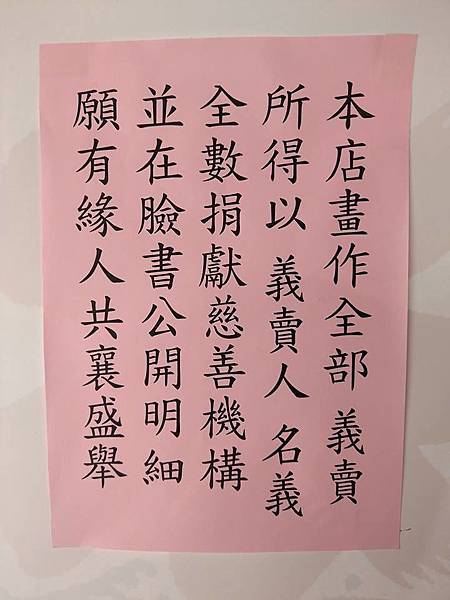 本店畫作全部 義賣
所得以 義賣人 名義
全數捐獻慈善機構
並在臉書公開明細
願有緣人共襄盛舉